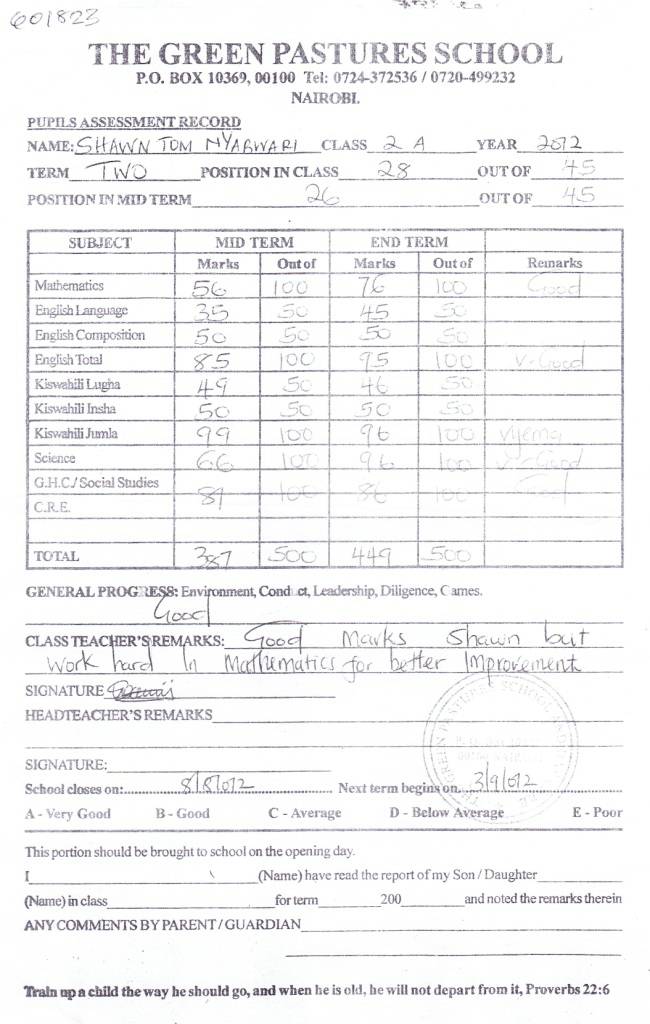 601823
THE GREEN PASTURES SCHOOL
P.O. BOX 10369, 00100 Tel: 0724-372536 / 0720-499232
NAIROBI.
PUPILS ASSESSMENT RECORD
NAME: SHAWN TOM NYABWARI CLASS 2 A YEAR 2012
TERM TWO POSITION IN CLASS 28 OUT OF 45
POSITION IN MID TERM 26 OUT OF 45
SUBJECT MID TERM END TERM
Marks Out of Marks Out of Remarks
Mathematics 56 100 76 100 Good
English Language 35 50 45 50
English Composition 50 50 50 50
English Total 85 100 95 100 V-Good
Kiswahili Lugha 49 50 46 50
Kiswahili Insha 50 50 50 50
Kiswahili Jumla 99 100 96 100 Vyema
Science 66 100 96 100 V-Good
G.H.C./ Social Studies 81 100 86 100 Good
C.R.E.
TOTAL 387 500 449 500
GENERAL PROGRESS: Environment, Conduct, Leadership, Diligence, Games.
Good
CLASS TEACHER'S REMARKS: Good Marks Shawn but
Work hard In Mathematics for better Improvement
SIGNATURE
HEADTEACHER'S REMARKS
SIGNATURE:
School closes on: 8/8/012 Next term begins on 3/9/012
A - Very Good B - Good C - Average D - Below Average E - Poor
This portion should be brought to school on the opening day.
I (Name) have read the report of my Son / Daughter
(Name) in class for term 200 and noted the remarks therein
ANY COMMENTS BY PARENT / GUARDIAN
Train up a child the way he should go, and when he is old, he will not depart from it, Proverbs 22:6